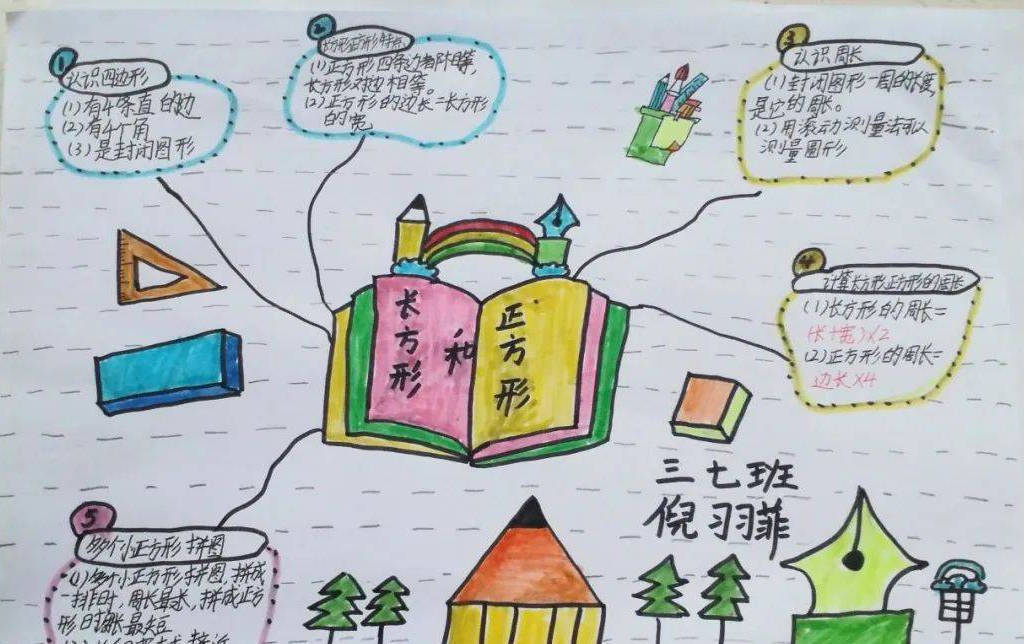 1
认识四边形
(1)有4条直的边
(2)有4个角
(3)是封闭图形
2
(1)正方形四条边都相等,
长方形对边相等。
(2)正方形的边长=长方形
的宽
3
认识周长
(1)封闭图形一周的长度
是它的周长。
(2)用滚动测量法可以
测量圆形
4
计算长方形正方形的周长
(1)长方形的周长=
(长+宽)×2
(2)正方形的周长=
边长×4
长方形
和
正方形
三七班
倪羽菲
5
多个小正方形拼图
(1)多个小正方形拼图,拼成
一排时,周长最长,拼成正方
形时周长最短